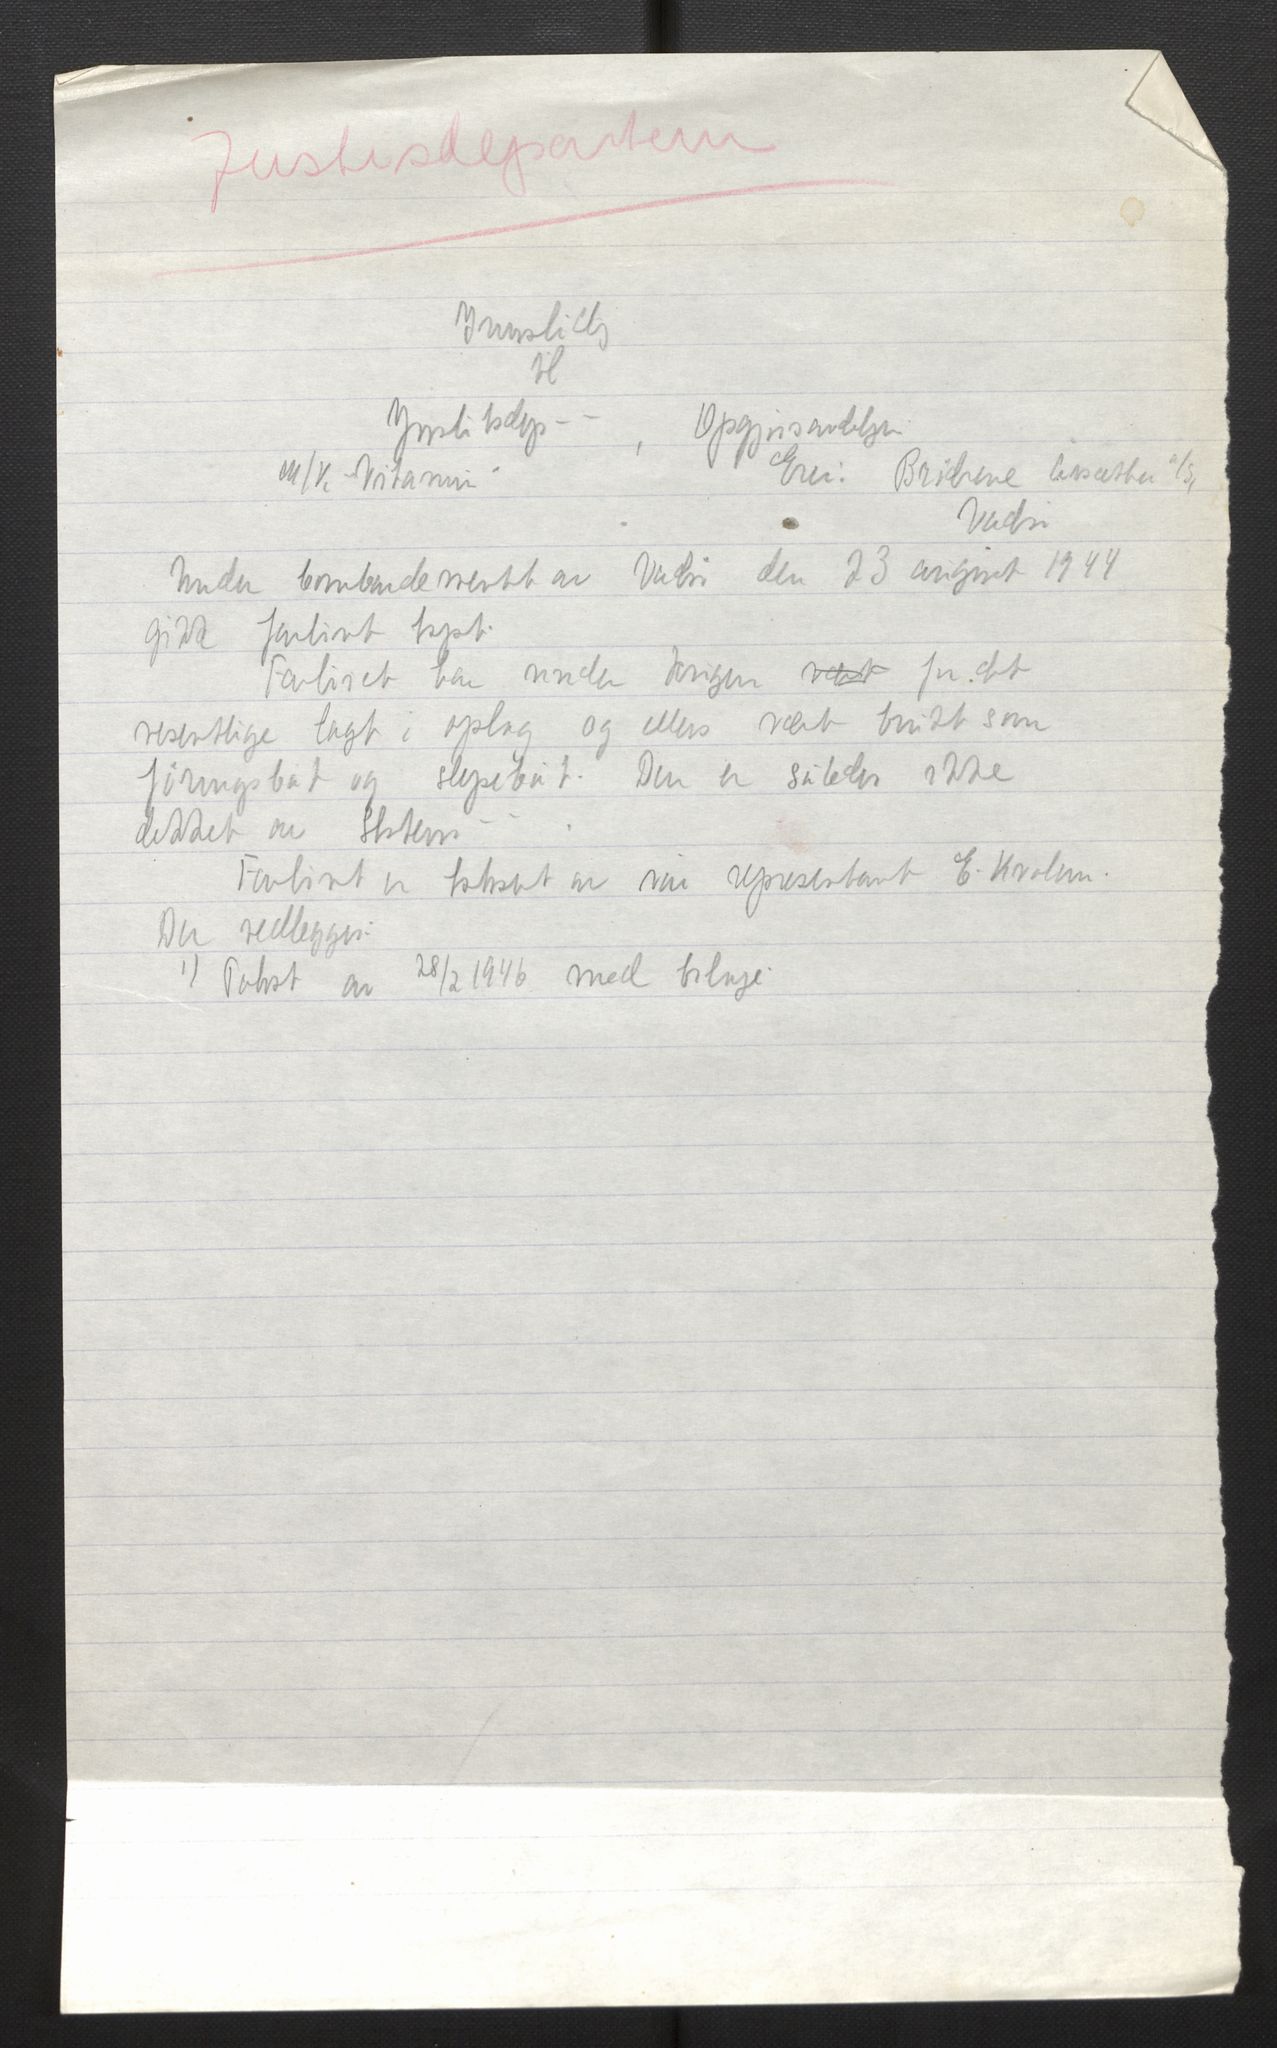 Justisdepartem
til
Justisdep --, Opgjørsavdelgen
M/K "Vitamin" Eier: Brødrene Aarsæther A/S,
Vadsø
Under bombardementet av Vadsø den 23 august 1944
gikk farkost tapt.
Farkost har under krigen vært for det
vesentlige lagt i oplag og ellers vært brukt som
føringsbåt og slepebåt. Den er således ikke
dekket av Statens --.
Farkost er takset av vår representant E. Kvalem.
Der vedlegges:
1) Takst av 28/2 1946 med bilage